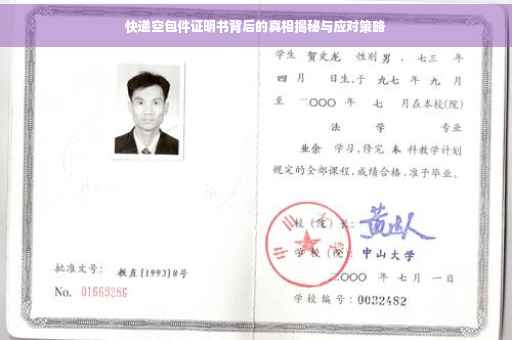 快递空包件证明书背后的真相揭秘与应对策略
学生 贺文龙 性别 男 、七三 年
四 月 日生,于 九七 年 九 月
至 二〇〇〇 年 七 月在本校(院)
法 学 专业
业余 学习,修完 本 科教学计划
规定的全部课程,成绩合格,准予毕业。
校(院)长:
中山大学
学校(院): 中山大学
二〇〇〇 年 七 月 一 日
批准文号: 教直[1993]8号
No. 01663286
学校编号: 0032482